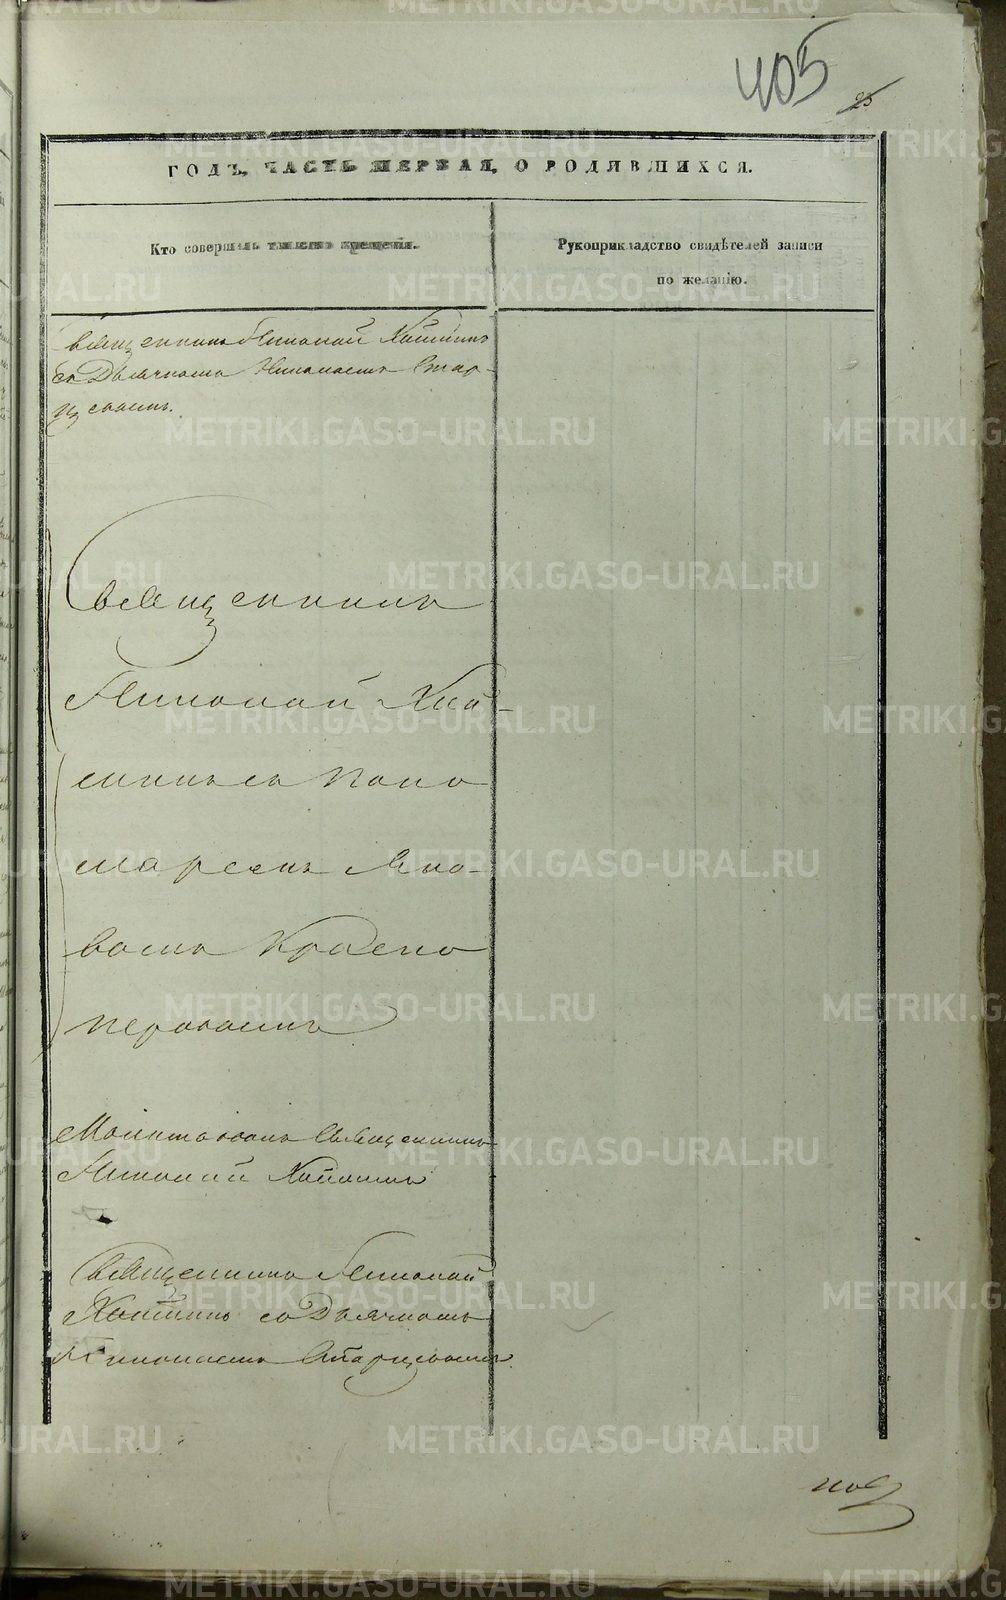 405
25
ГОДЪ, ЧАСТЬ ПЕРВАЯ, О РОДИВШИХСЯ.
Кто совершалъ таинство крещенія.
Рукоприкладство свидѣтелей записи
по желанію.
Священникъ Николай
съ Дьячкомъ Николаемъ Стар-
цевымъ.
Священникъ
Николай
съ Поно
маремъ
Красно
перовымъ
Молитвовалъ Священникъ
Николай
Священникъ Николай
со Дьячкомъ
Николаемъ Старцевымъ.
METRIKI.GASO-URAL.RU